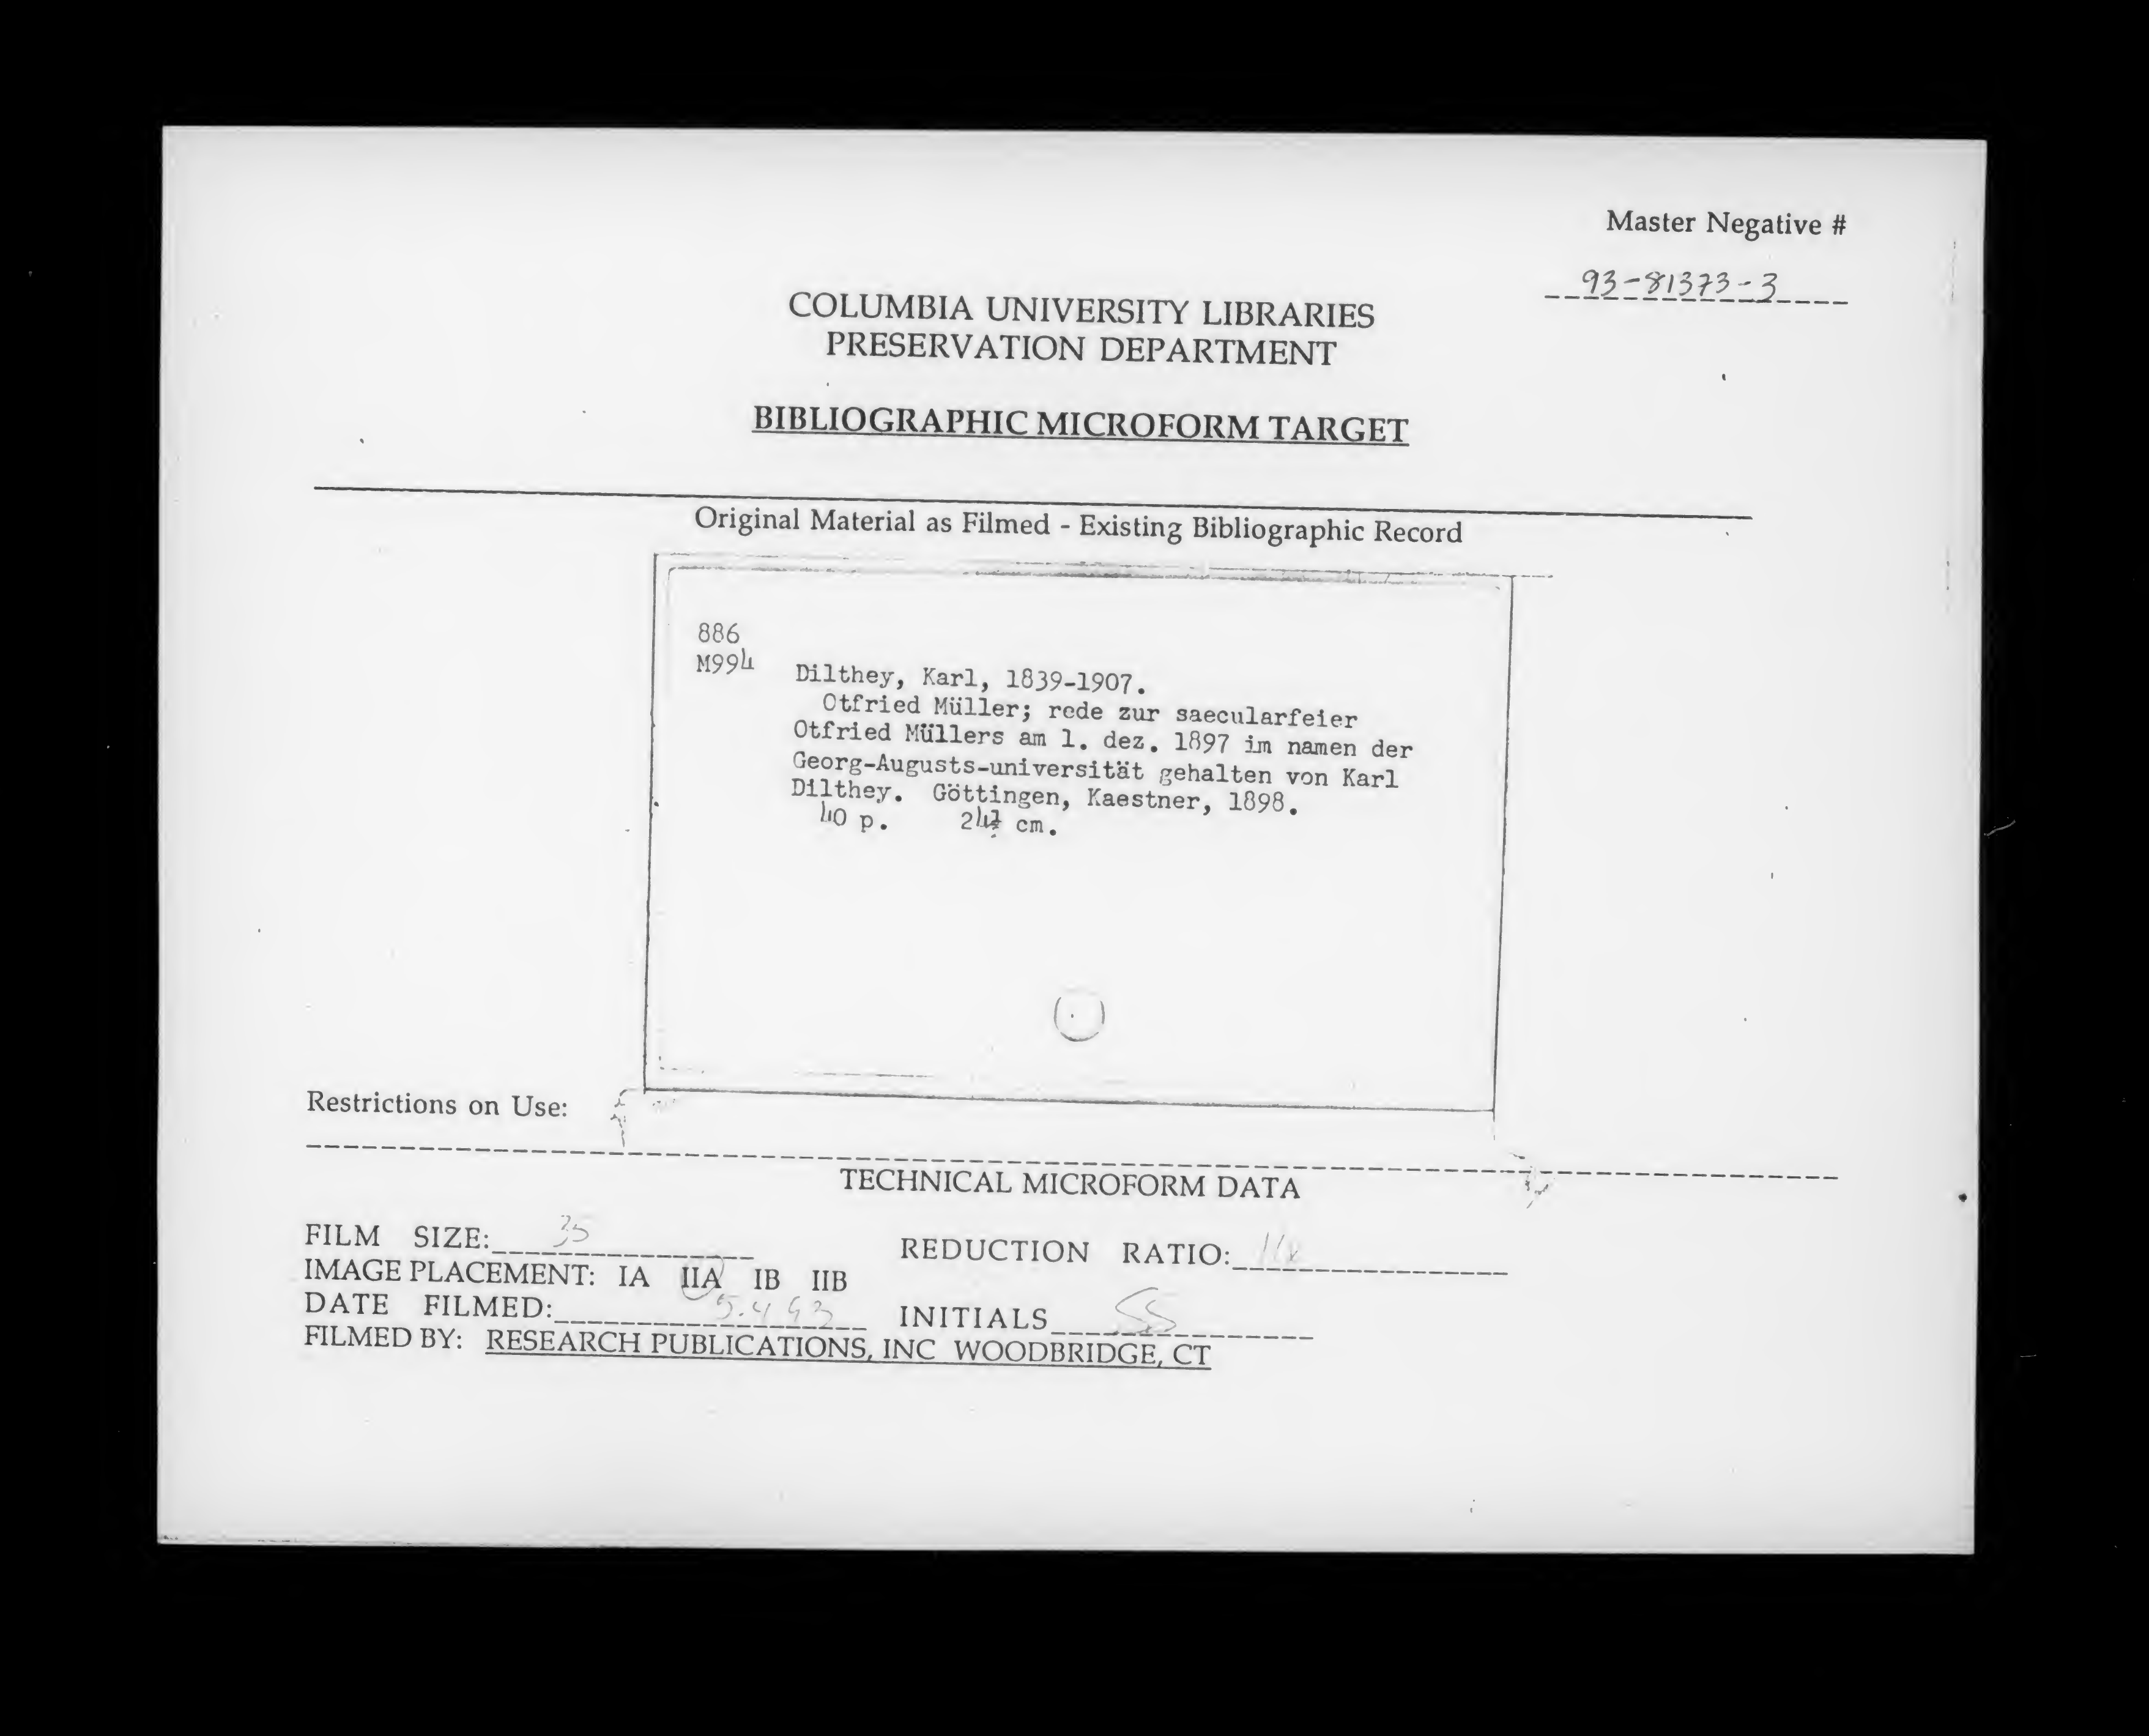 Master Negative #
93-81373-3
COLUMBIA UNIVERSITY LIBRARIES
PRESERVATION DEPARTMENT
BIBLIOGRAPHIC MICROFORM TARGET
Original Material as Filmed - Existing Bibliographic Record
886
M994
Dilthey, Karl, 1839-1907.
Otfried Müller; rede zur saecularfeier
Otfried Müllers am 1. dez. 1897 im namen der
Georg-Augusts-universität gehalten von Karl
Dilthey. Göttingen, Kaestner, 1898.
40 p. cm.
Restrictions on Use:
TECHNICAL MICROFORM DATA
FILM SIZE: 35
REDUCTION RATIO: 11x
IMAGE PLACEMENT: IA IIA IB IIB
DATE FILMED: 5.4.93
INITIALS SS
FILMED BY: RESEARCH PUBLICATIONS, INC WOODBRIDGE, CT